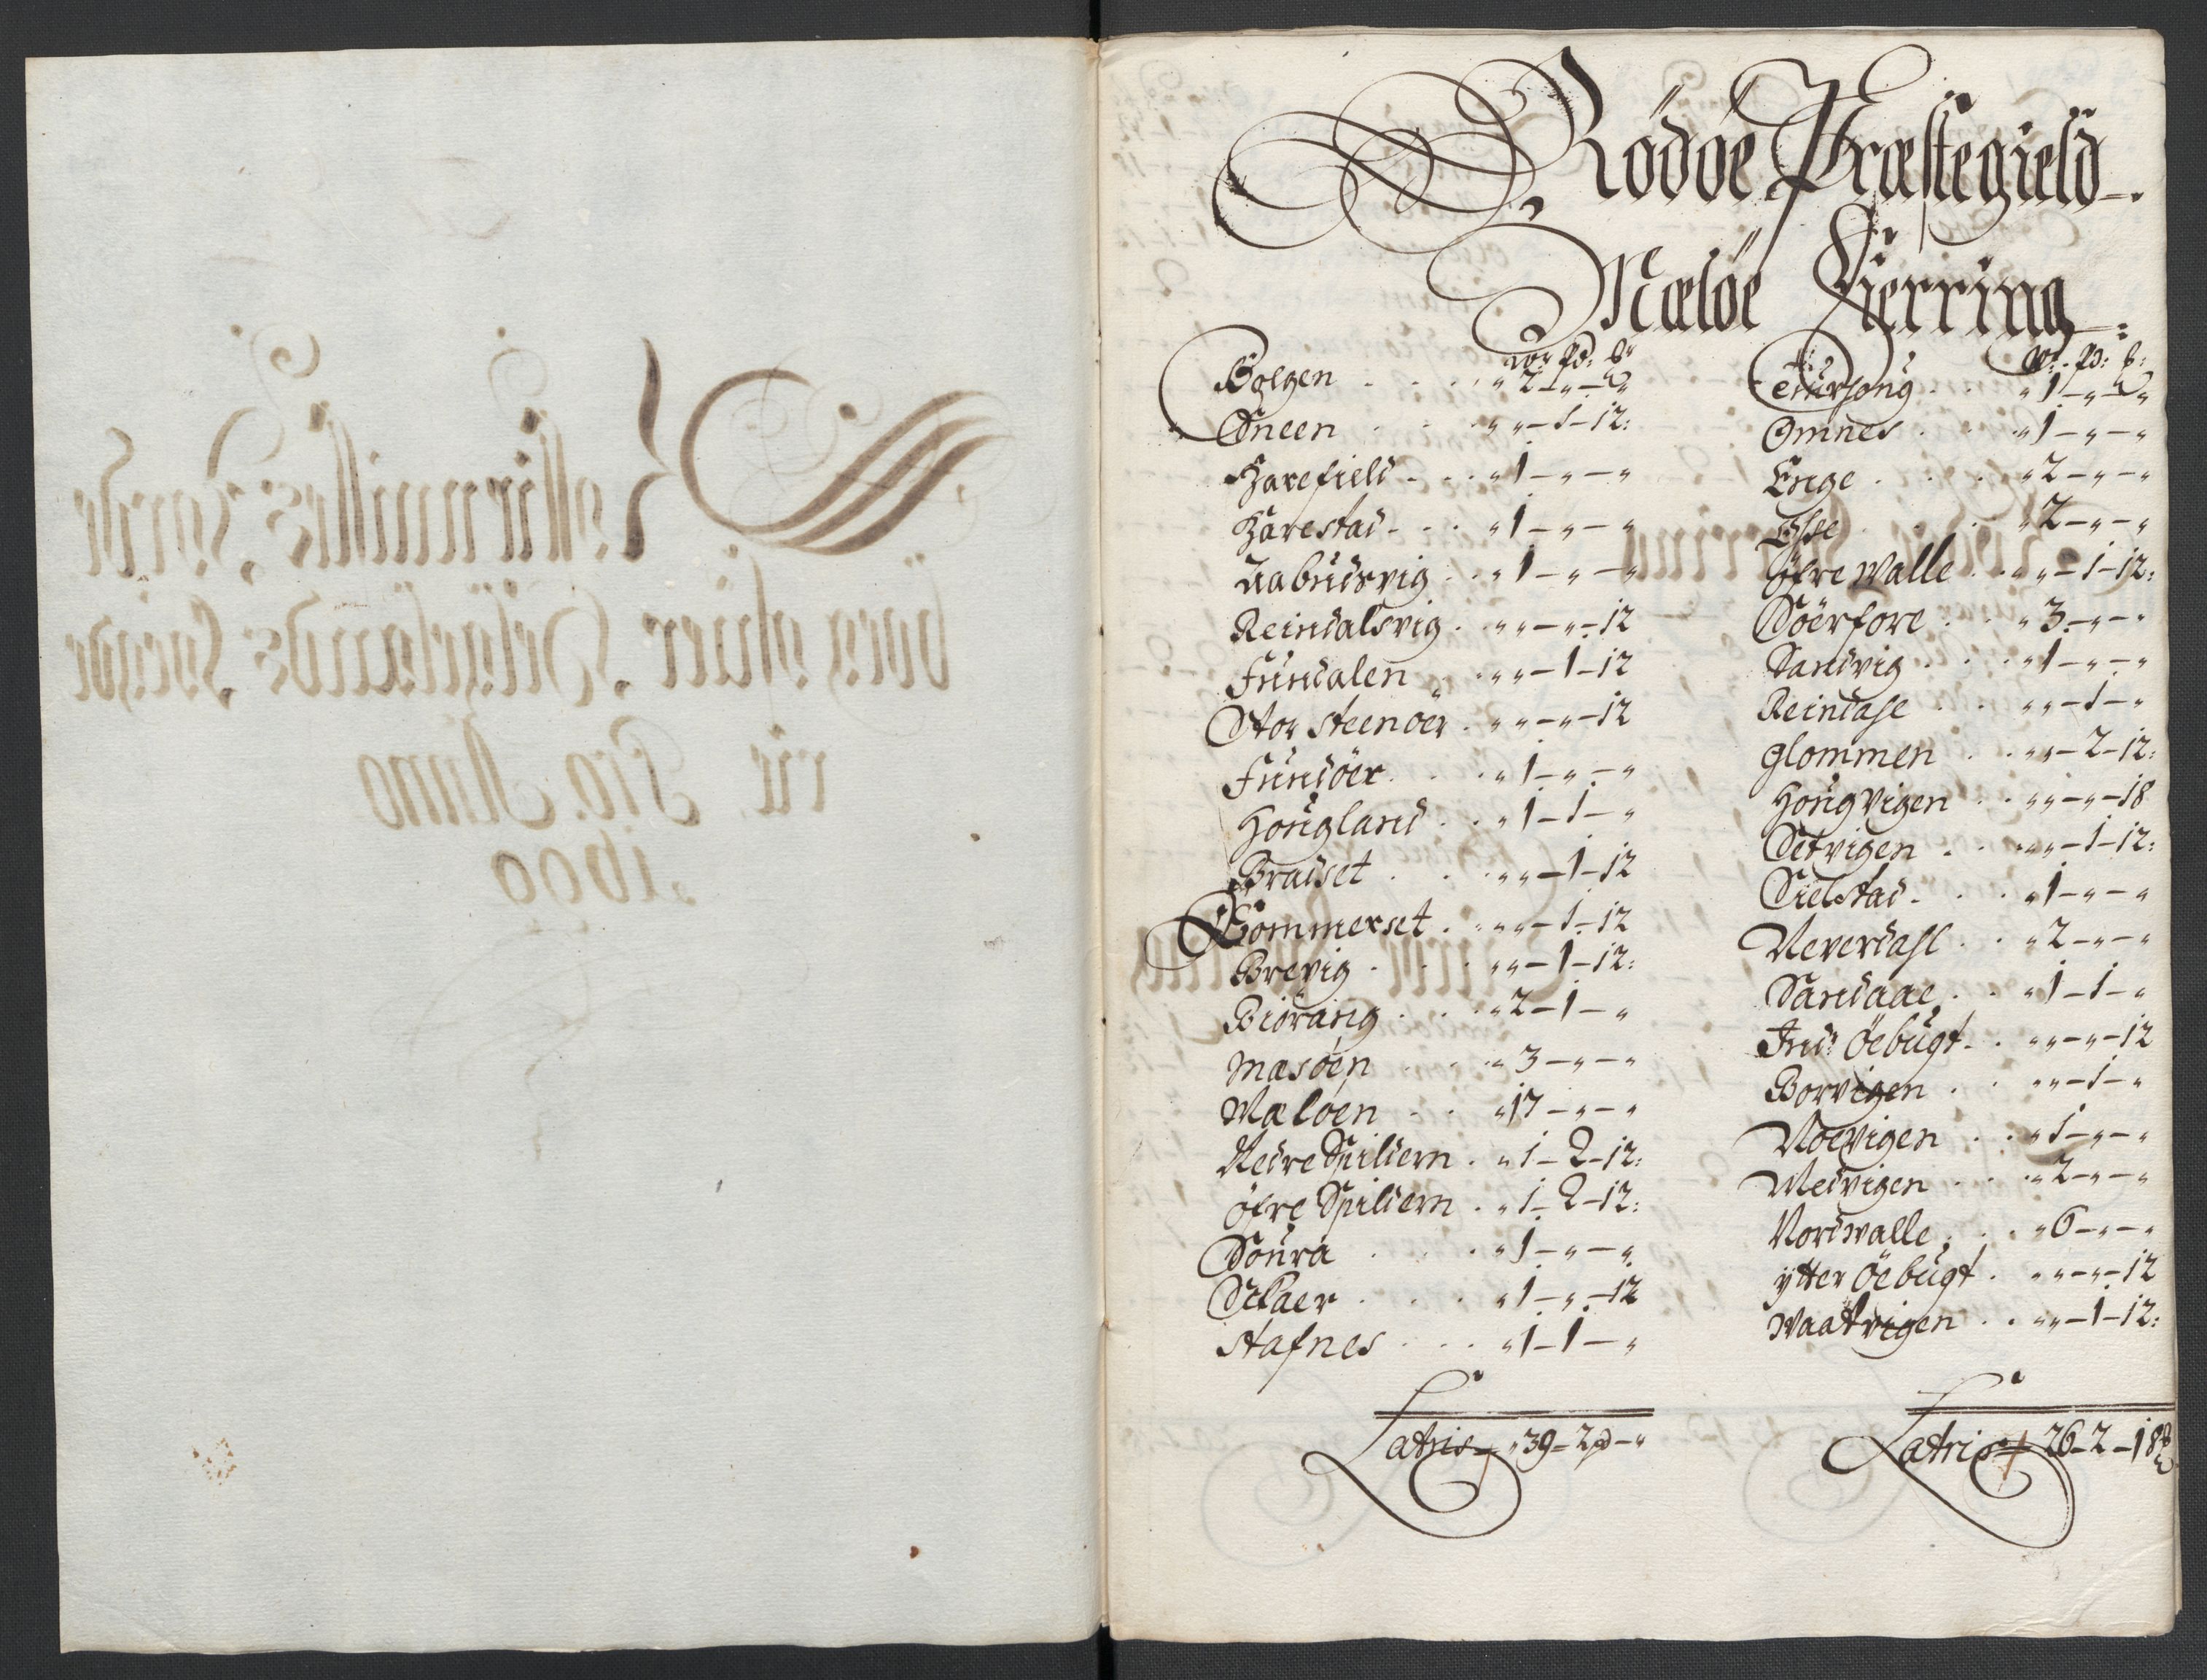 Rödöe Præstegield
Mæløe Fierring
w: pd: b:
Bolgen 2 - " - "
Sneen " - 1 - 12:
Harefield 1 - " - "
Harestad 1 - " - "
Aabudsvig 1 - " - "
Reindalsvig " - " - 12
Fundalen " - 1 - 12
Stor Steenoer " - " - 12
Fundöer 1 - " - "
Hougland 1 - 1 - "
Bradset " - 1 - 12
Bommerset " - 1 - 12
Brevig " - 1 - 12:
Biörang 2 - 1 - "
Mæsöen 3 - " - "
Mæløen 17 - " - "
Nedre Spildern 1 - 2 - 12:
öfre Spildern 1 - 2 - 12:
Soura 1 - " - "
Selaer 1 - " - 12
Stafnes 1 - 1 - "
Latris 39 - 2 pd - "
w: pd: b:
1 - " - "
Omnes 1 - " - "
Enge 2 - " - "
2 - " - "
öfre Walle " - 1 - 12:
Söerfore 3 - " - "
Sandvig 1 - " - "
Reindahl " - 1 - "
Glommen " - 2 - 12:
Hougvigen " - " - 18
Setvigen " - 1 - 12:
Sielstad 1 - " - "
Neverdahl 2 - " - "
Sandaae 1 - 1 - "
Ind: Öebugt " - " - 12
Borvigen " - 1 - "
Noevigen 1 - " - "
Medvigen 2 - " - "
Nordwalle 6 - " - "
ytter Öebugt " - " - 12
Waatvigen " - 1 - 12:
Latris 26 - 2 - 18